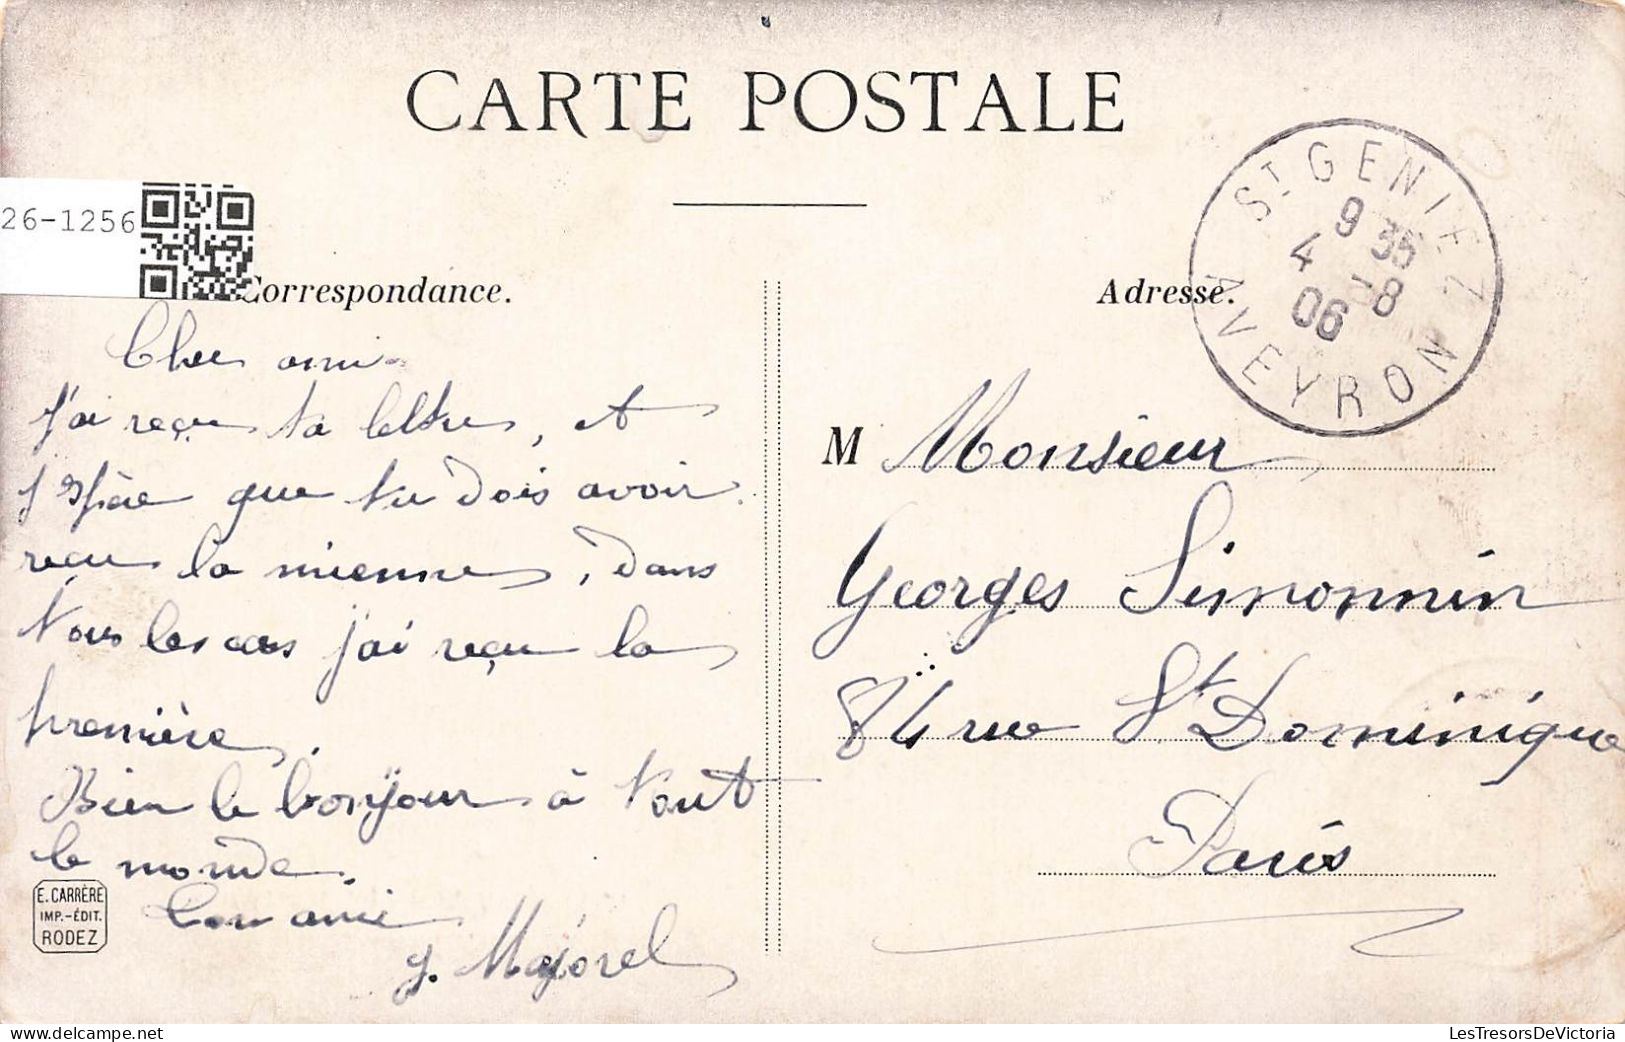 CARTE POSTALE
26-1256
Correspondance.
Cher ami
J'ai reçu ta lettre, et
j'espère que tu dois avoir
reçu la mienne, dans
tous les cas j'ai reçu la
première.
Bien le bonjour à tout
le monde.
Ton ami
J. Majorel
E. CARRÈRE
IMP.-ÉDIT.
RODEZ
Adresse.
ST GENIEZ
9 35
4 -8
06
AVEYRON
M Monsieur
Georges Simonnin
84 rue St Dominique
Paris
delcampe.net
LesTresorsDeVictoria